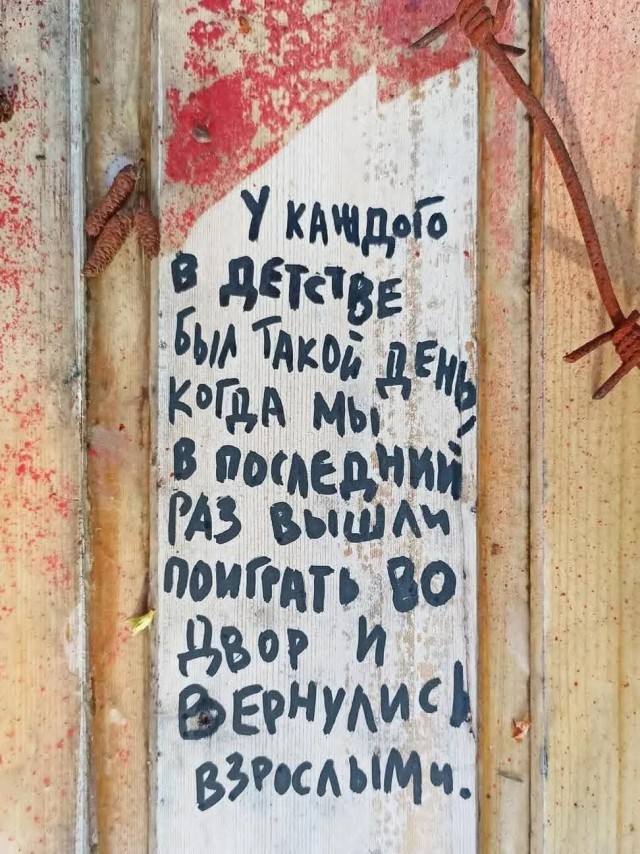 У КАЖДОГО
В ДЕТСТВЕ
БЫЛ ТАКОЙ ДЕНЬ,
КОГДА МЫ
В ПОСЛЕДНИЙ
РАЗ ВЫШЛИ
ПОИГРАТЬ ВО
ДВОР И
ВЕРНУЛИСЬ
ВЗРОСЛЫМИ.